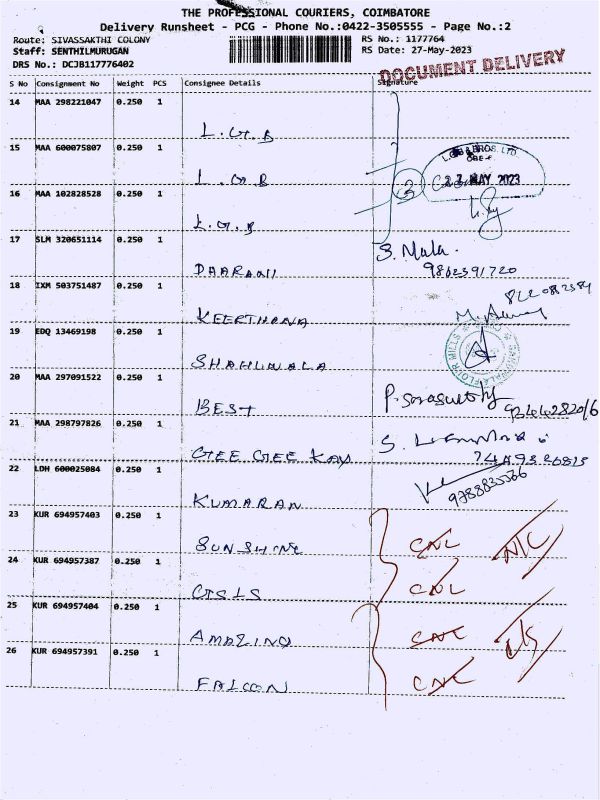 THE PROFESSIONAL COURIERS, COIMBATORE
Delivery Runsheet - PCG - Phone No.:0422-3505555 - Page No.:2
Route: SIVASSAKTHI COLONY RS No.: 1177764
Staff: SENTHILMURUGAN RS Date: 27-May-2023
DRS No.: DCJB117776402
DOCUMENT DELIVERY
S No Consignment No Weight PCS Consignee Details Signature
14 MAA 298221047 0.250 1
L.G.B
15 MAA 600075807 0.250 1
L.G.B
L.G.B & BROS. LTD.
27 MAY 2023
16 MAA 102828528 0.250 1
L.G.B
17 SLM 320651114 0.250 1
DAARANI
S. Mala.
9862391720
18 IXM 503751487 0.250 1
KEERTHANA
19 EDQ 13469198 0.250 1
SHAHUWALA
FLOUR MILLS
20 MAA 297091522 0.250 1
BEST
21 MAA 298797826 0.250 1
GEE GEE KAY
22 LDH 600025084 0.250 1
KUMARAN
23 KUR 694957403 0.250 1
SUNSHINE
CNL
24 KUR 694957387 0.250 1
GSLS
CNL
25 KUR 694957404 0.250 1
AMAZING
CNL
26 KUR 694957391 0.250 1
FALCON
CNL